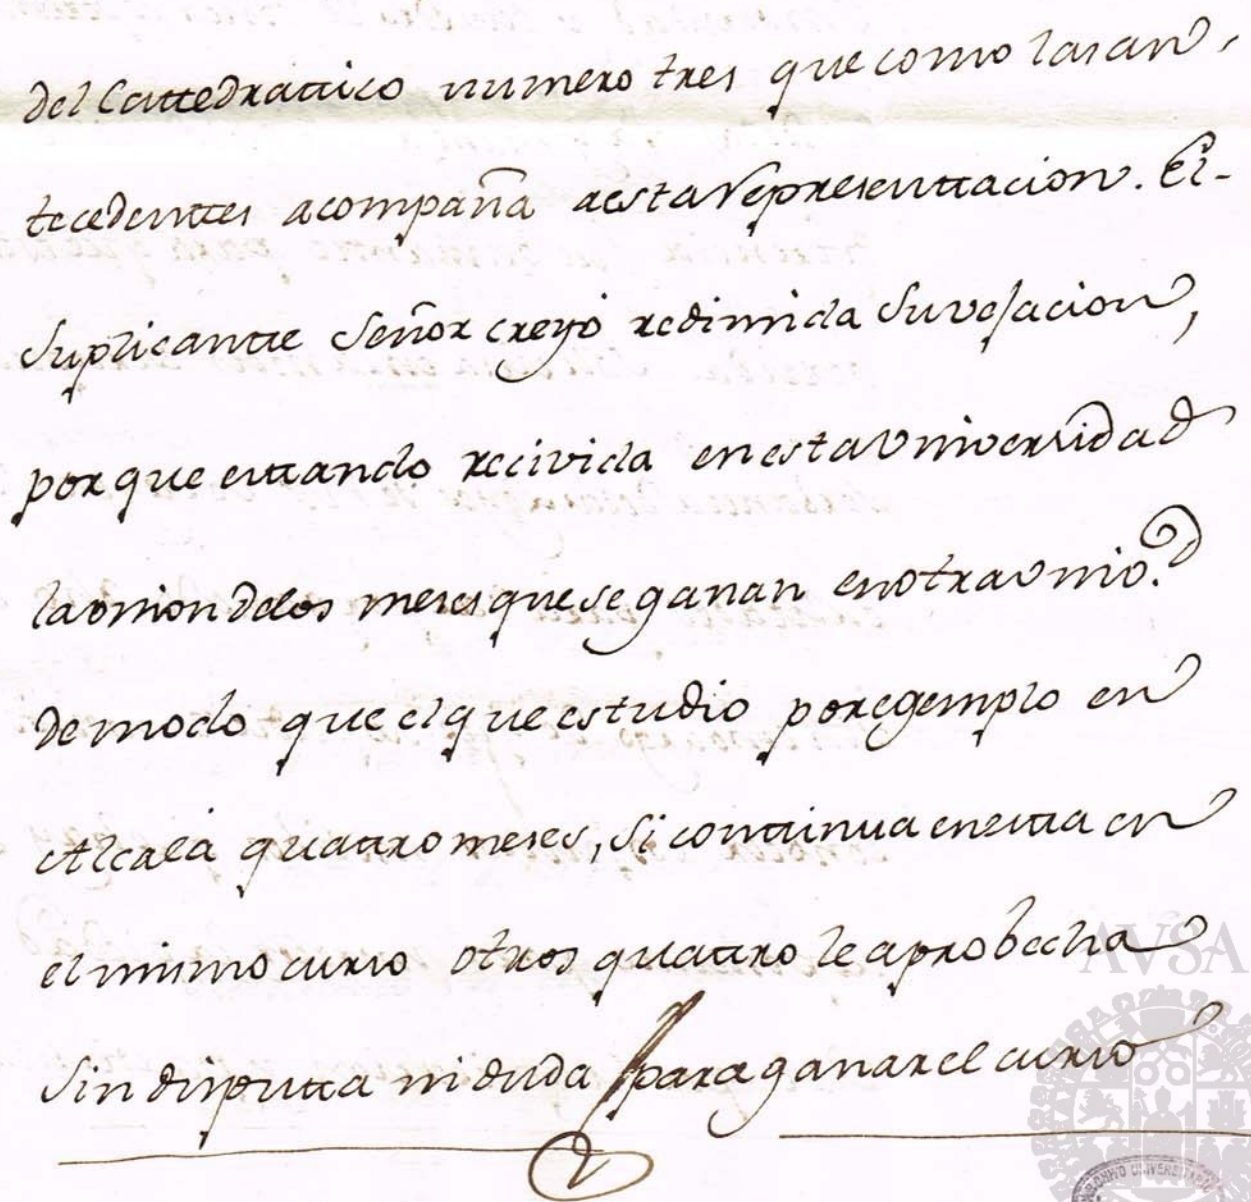 del Cattedratico numero tres que como las an-
tecedentes acompaña a esta representtacion. El
suplicante Señor creyó redimida su vejacion,
porque estando recivida en esta Universidad
la union de los meses que se ganan en otra Univ.d
de modo que el que estudio por egemplo en
Alcalá quatro meses, si continua en esta en
el mismo curso otros quatro le aprobecha
sin disputa ni duda para ganar el curso
AVSA